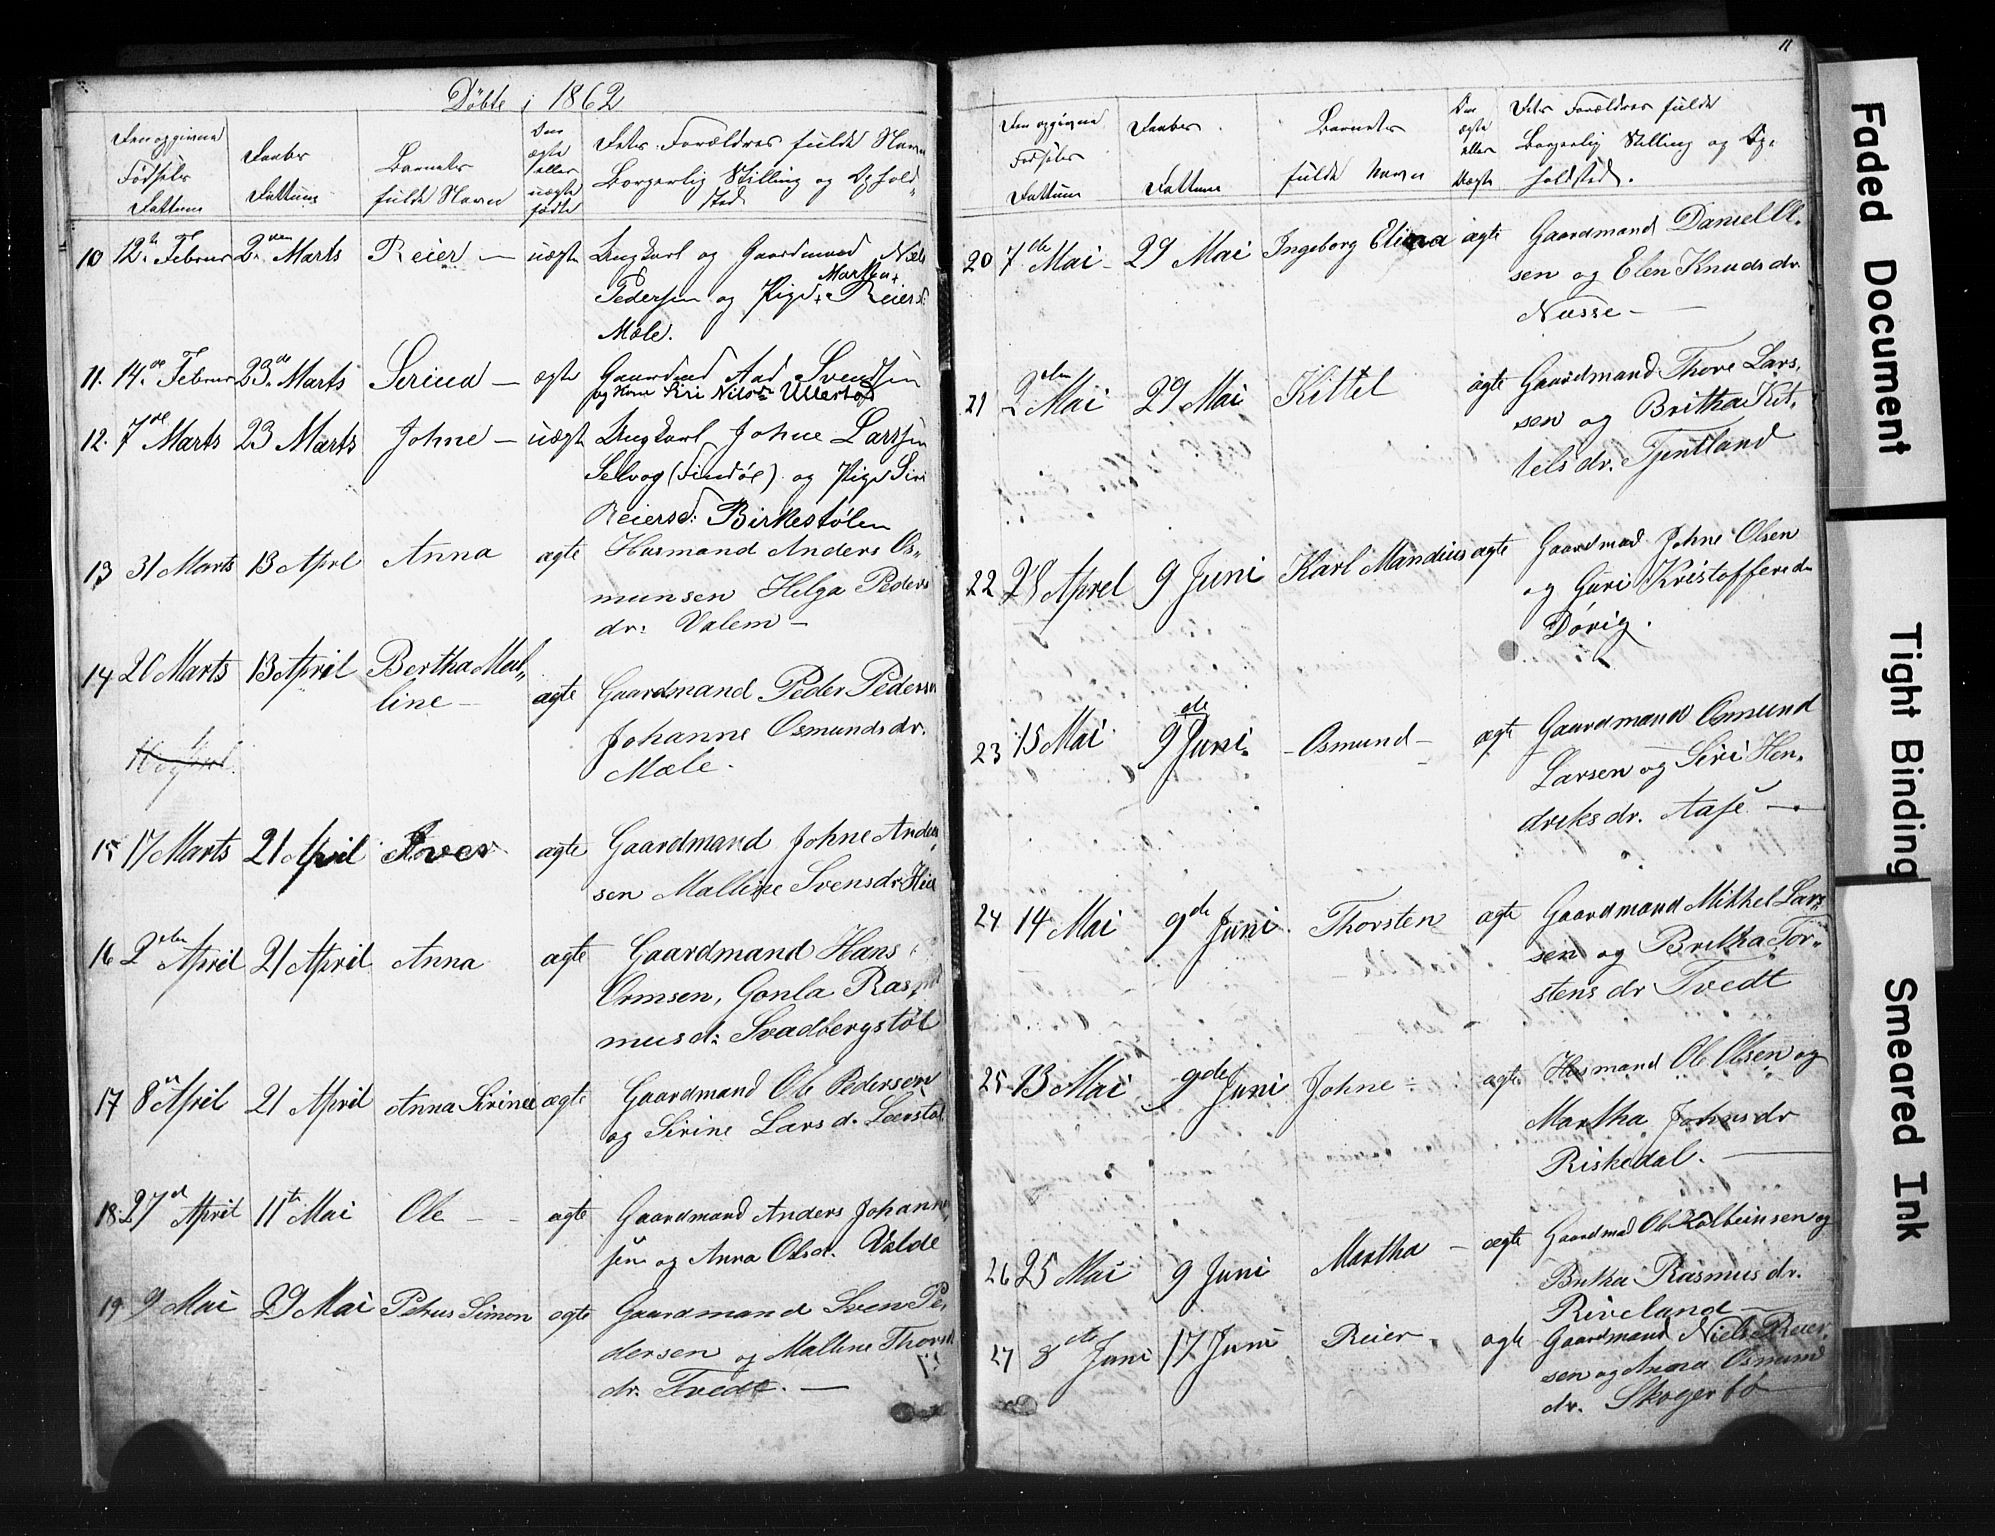 Døbte i 1862
Den opgivne Fødsels Dattum
Daabs Dattum
Barnets fulde Navn
Den ægte eller uægte fødte
Dets Forældres fulde Navn Borgerlig Stilling og Ophold-sted
10 12te Februar 2den Marts Reier — uægte Ungkarl og Gaardmand Niels
Pedersen og Pige Martha Reiersd:
Mæle.
11. 14de Februar 23de Marts Serina — ægte Gaardmd Aad Svendsen
og Kone Siri Nilsdr Ullestad
12. 7de Marts 23 Marts Johne — uægte Ungkarl Johne Larssen
Selvog (Findøe) og Pige Siri
Reiersd: Birkestølen
13 31 Marts 13 Aprl Anna ægte Husmand Anders Os-
munsen Helga Peders
dr: Valem —
14 20 Marts 13 April Bertha Mal-
line — ægte Gaardmand Peder Pedersen
Johanne Osmundsdr.
Mæle.
15 17 Marts 21 April Iver ægte Gaardmand Johne Ander
sen Malline Svensdr Hia
16 2den April 21 April Anna ægte Gaardmand Hans
Ormsen, Gonla Ras
musd: Svadbergstøl
17 8de April 21 April Anna Sirine ægte Gaardmand Ole Pedersen
og Sirine Larsd. Lærstøl
18. 27de April 11te Mai Ole — ægte Gaardmand Anders Johann
sen og Anna Olsdr. Valde
19 9 Mai 29 Mai Petrus Simon ægte Gaardmand Sven Pe-
dersen og Malline Thorst
dr. Tvedt. —
11
Den opgivne Fødsels Dattum
Daabs Dattum
Barnets fulde Navn
Den ægte eller Uægte
Dets Forældres fulde Borgerlig Stilling og Op-holdsted.
20 7de Mai 29 Mai Ingeborg Elina ægte Gaardmand Daniel Ol-
sen og Elen Knudsdr
Nusse —
21 2den Mai 29 Mai Kittel ægte Gaardmand Thore Lars-
sen og Britha Kit-
telsdr. Tjentland
22 28 Aprel 9 Juni Karl Mandius ægte Gaardmad Johne Olsen
og Guri Kristofferd
Dørig.
23 15 Mai 9de Juni. — Osmund — ægte Gaardmand Osmund
Larsen og Siri Hen-
driksdr. Aase —
24 14 Mai 9de Juni Thorsten ægte Gaardmand Mikkel Lars-
sen og Britha Tor-
stensdr Tvedt
25 13 Mai 9de Juni Johne ægte Husmand Ole Olsen og
Martha Johnsdr
Riskedal.
26 25 Mai 9 Juni Martha — ægte Gaardmad Ole Kolbeinsen og
Britha Rasmusdr.
Riveland —
27 8de Juni 17 Juni Reier ægte Gaardmand Niels Reier-
sen og Anna Osmund
dr. Skogerbø
Faded Document
Tight Binding
Smeared Ink